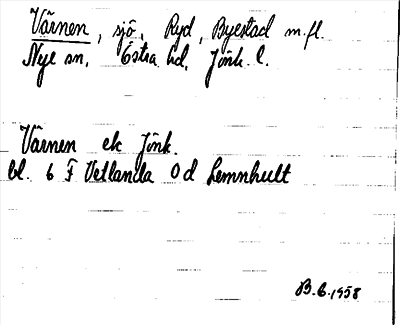 Värnen, sjö, Ryd, Byestad m.fl.
Nye sn, Östra hd, Jönk. l.
Värnen ek Jönk.
bl. 6 F Vetlanda 0 d Lemnhult
B.G. 1958